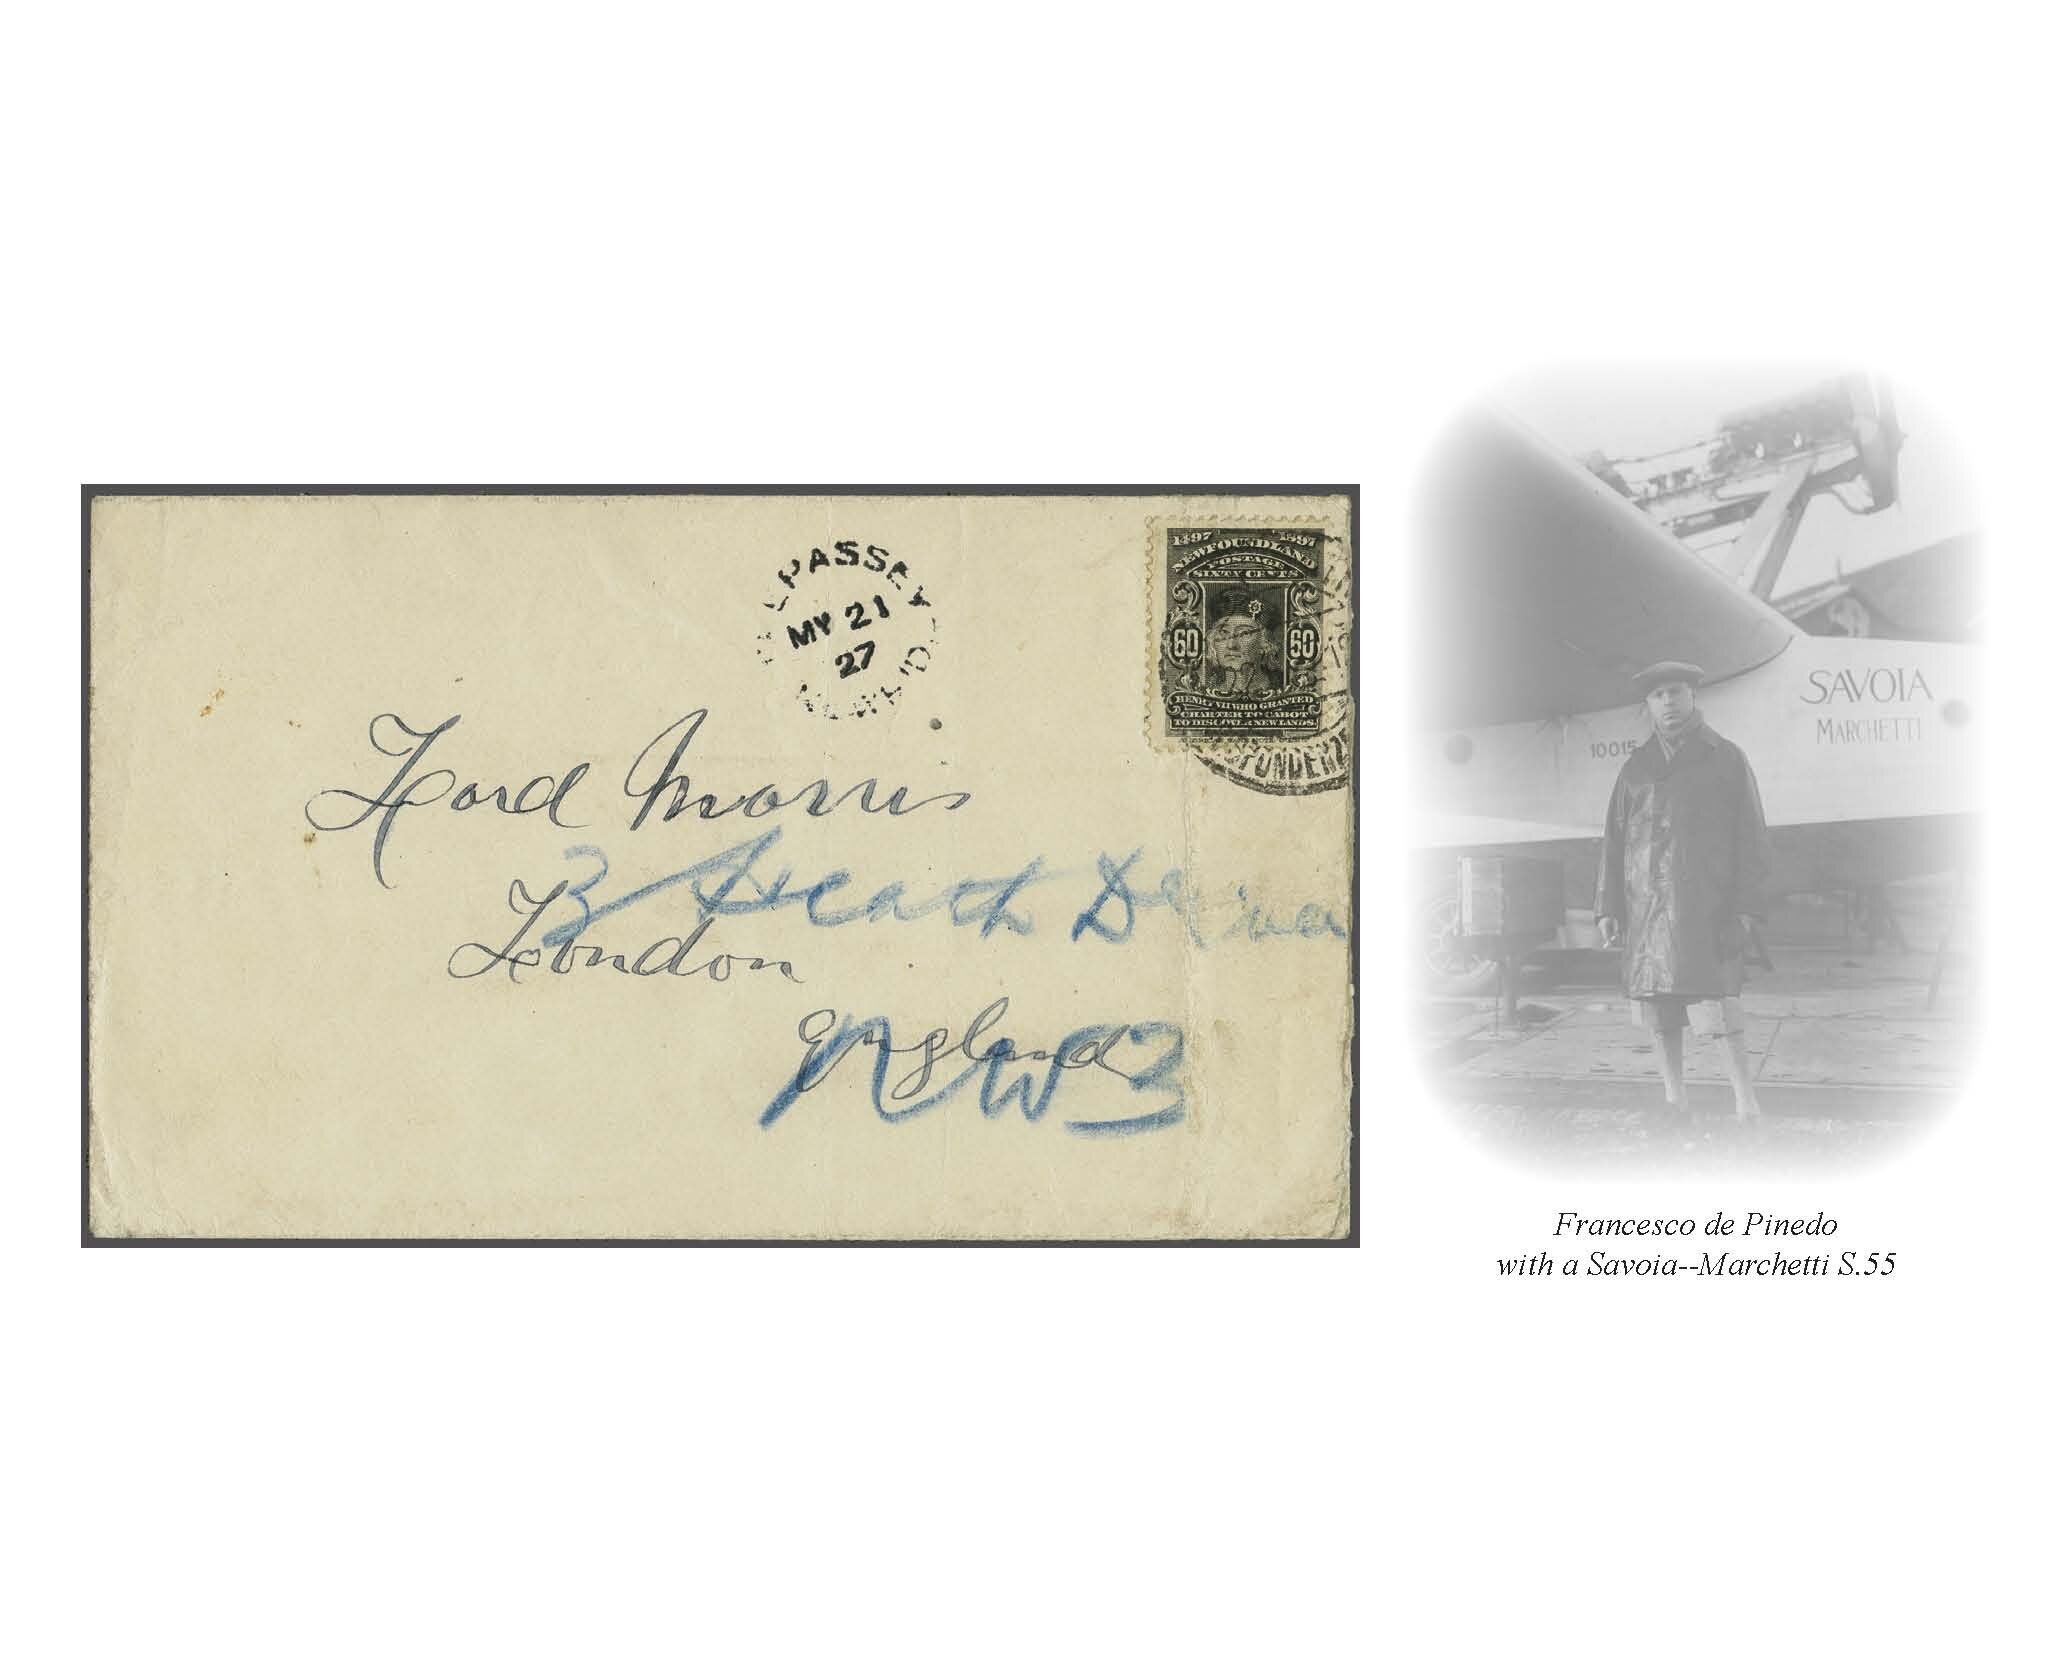 MY 21
27
1497 1897
NEWFOUNDLAND
POSTAGE
SIXTY CENTS
60 60
HENRY VII WHO GRANTED
CHARTER TO CABOT
TO DISCOVER NEW LANDS.
Lord Morris
3 Heath Drive
London
England
NW3
SAVOIA
MARCHETTI
10015
Francesco de Pinedo
with a Savoia--Marchetti S.55